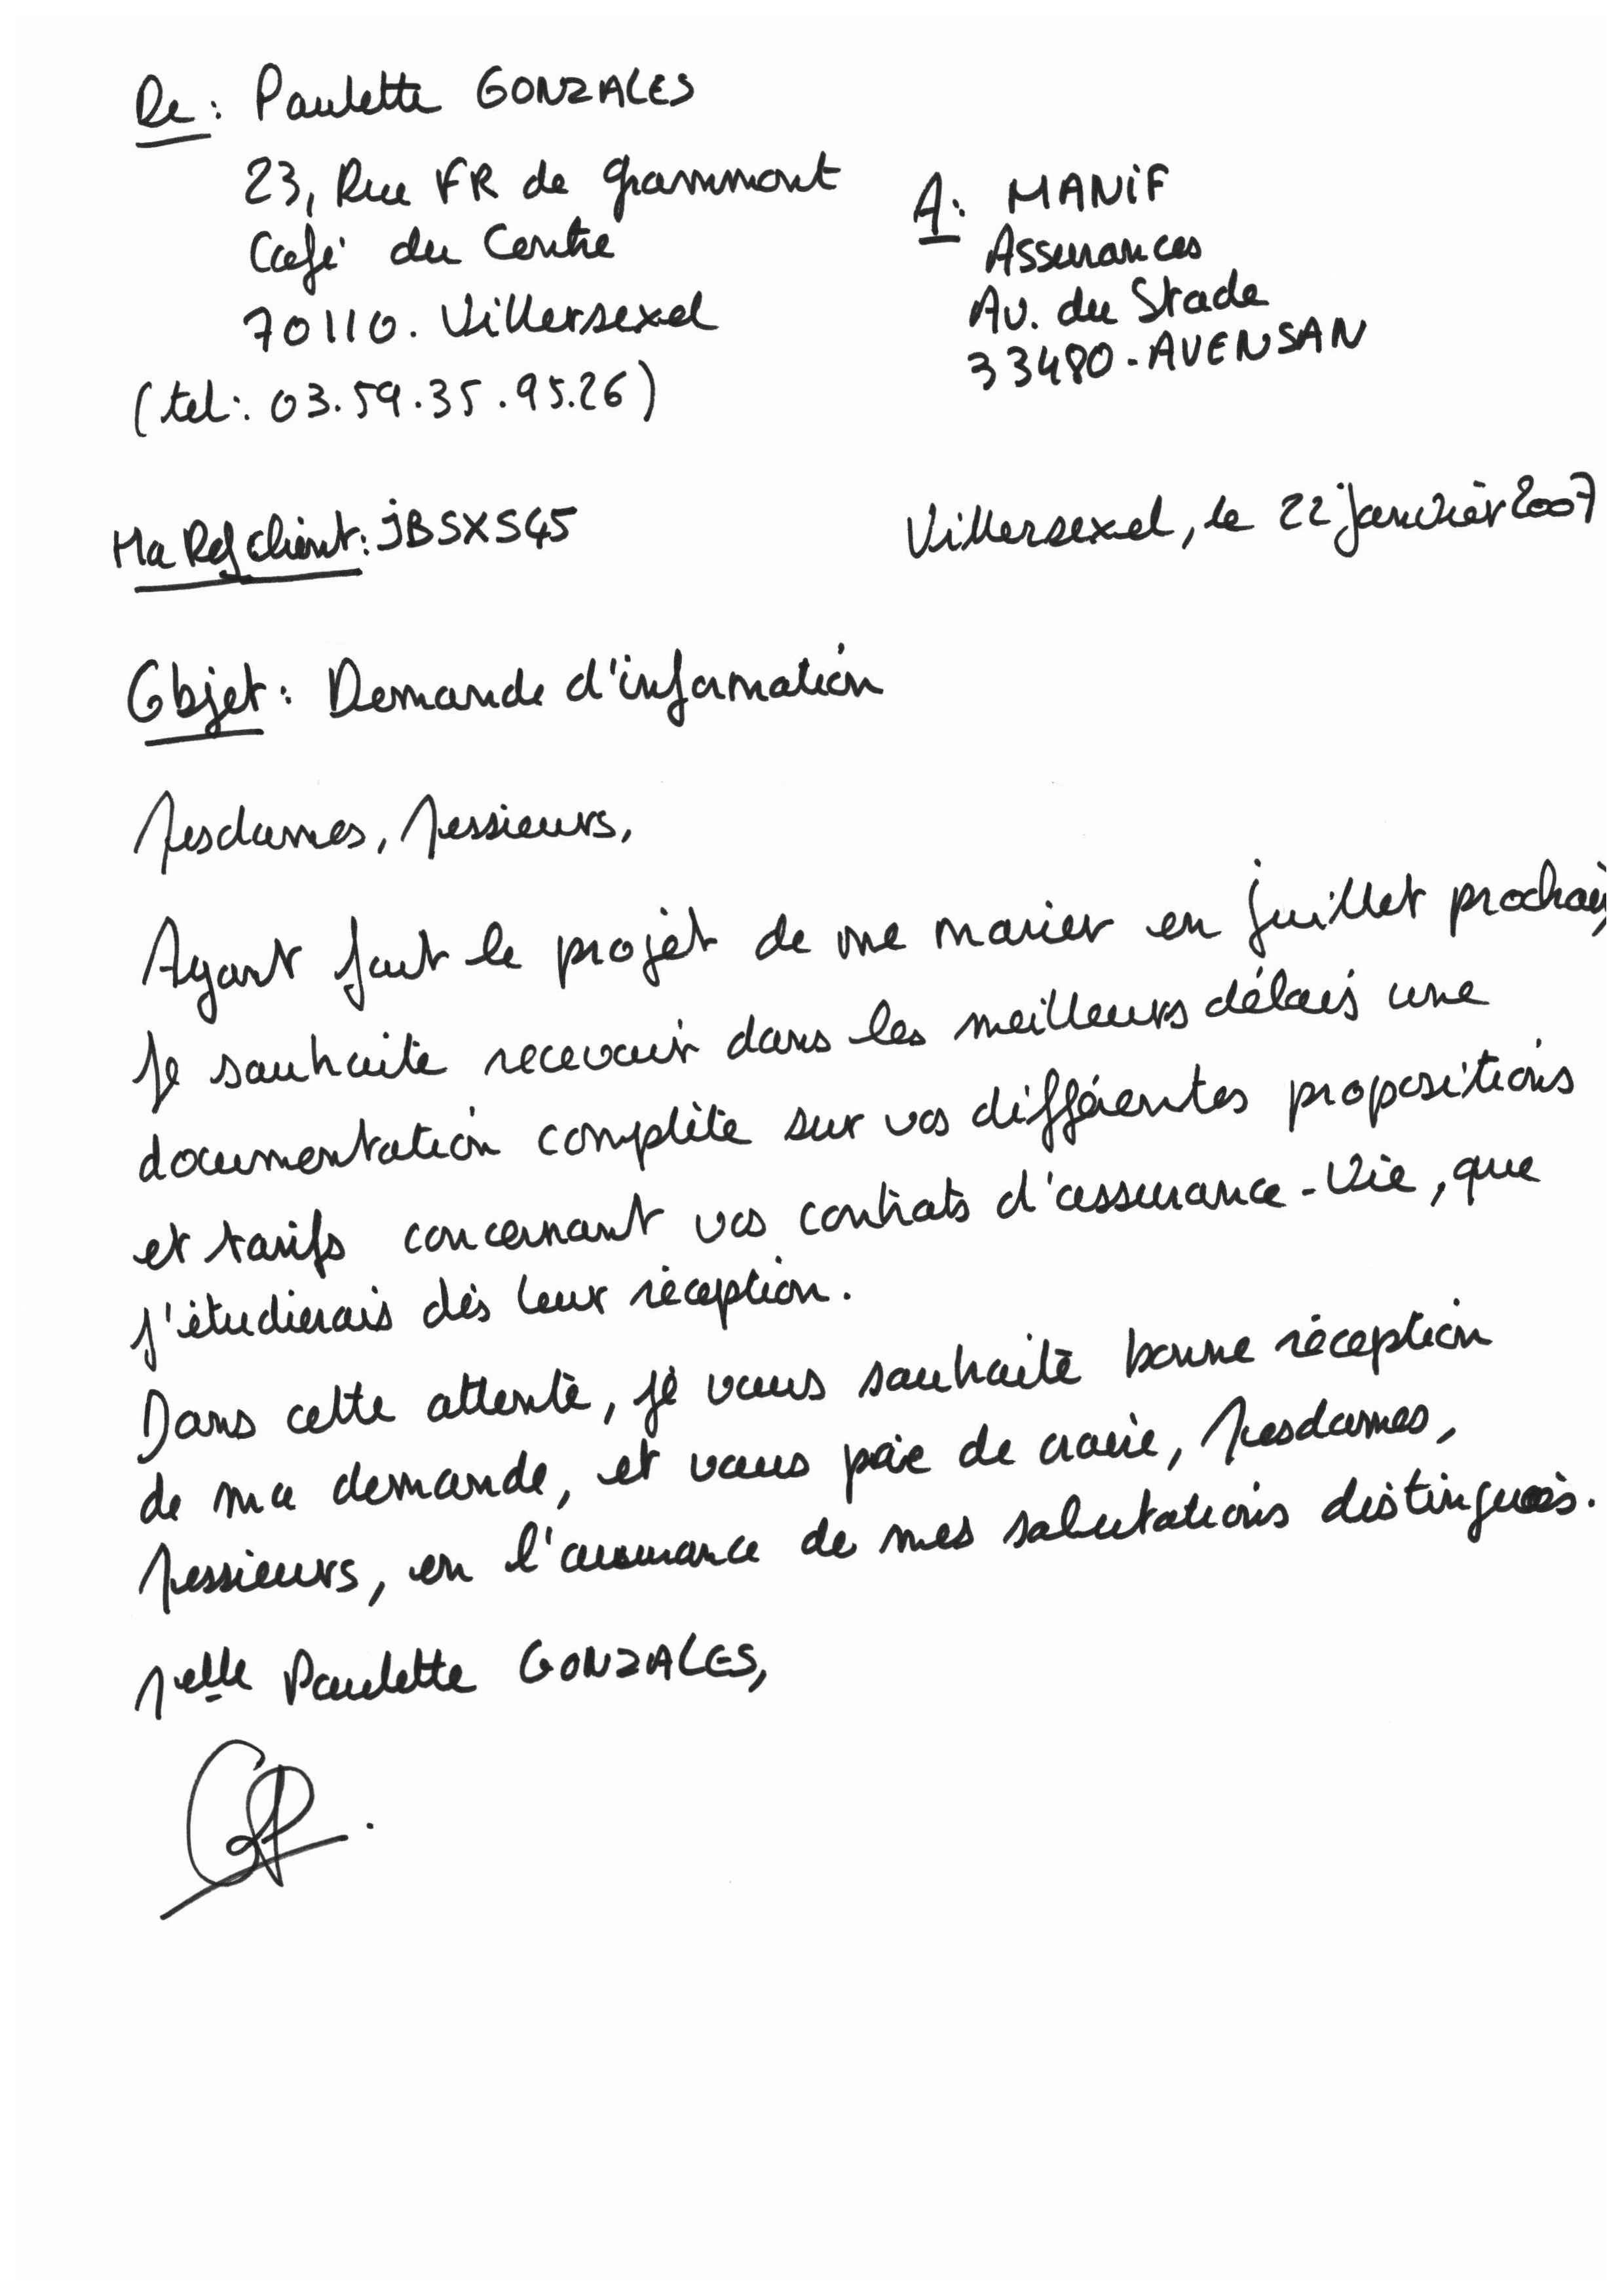 De : Paulette GONZALES
23, Rue FR de Grammont
Café du Centre
70110. Villersexel
(tel: 03.59.35.95.26)
A : MANIF
Assurances
Av. du Stade
33480 - AVENSAN
Ma Ref client : JBSXS45
Villersexel, le 22 janvier 2007
Objet : Demande d'information
Mesdames, Messieurs,
Ayant fait le projet de me marier en juillet prochain,
je souhaite recevoir dans les meilleurs délais une
documentation complète sur vos différentes propositions
et tarifs concernant vos contrats d'assurance-Vie, que
j'étudierais dès leur réception.
Dans cette attente, je vous souhaite bonne réception
de ma demande, et vous prie de croire, Mesdames,
Messieurs, en l'assurance de mes salutations distinguées.
Melle Paulette GONZALES,
GP.